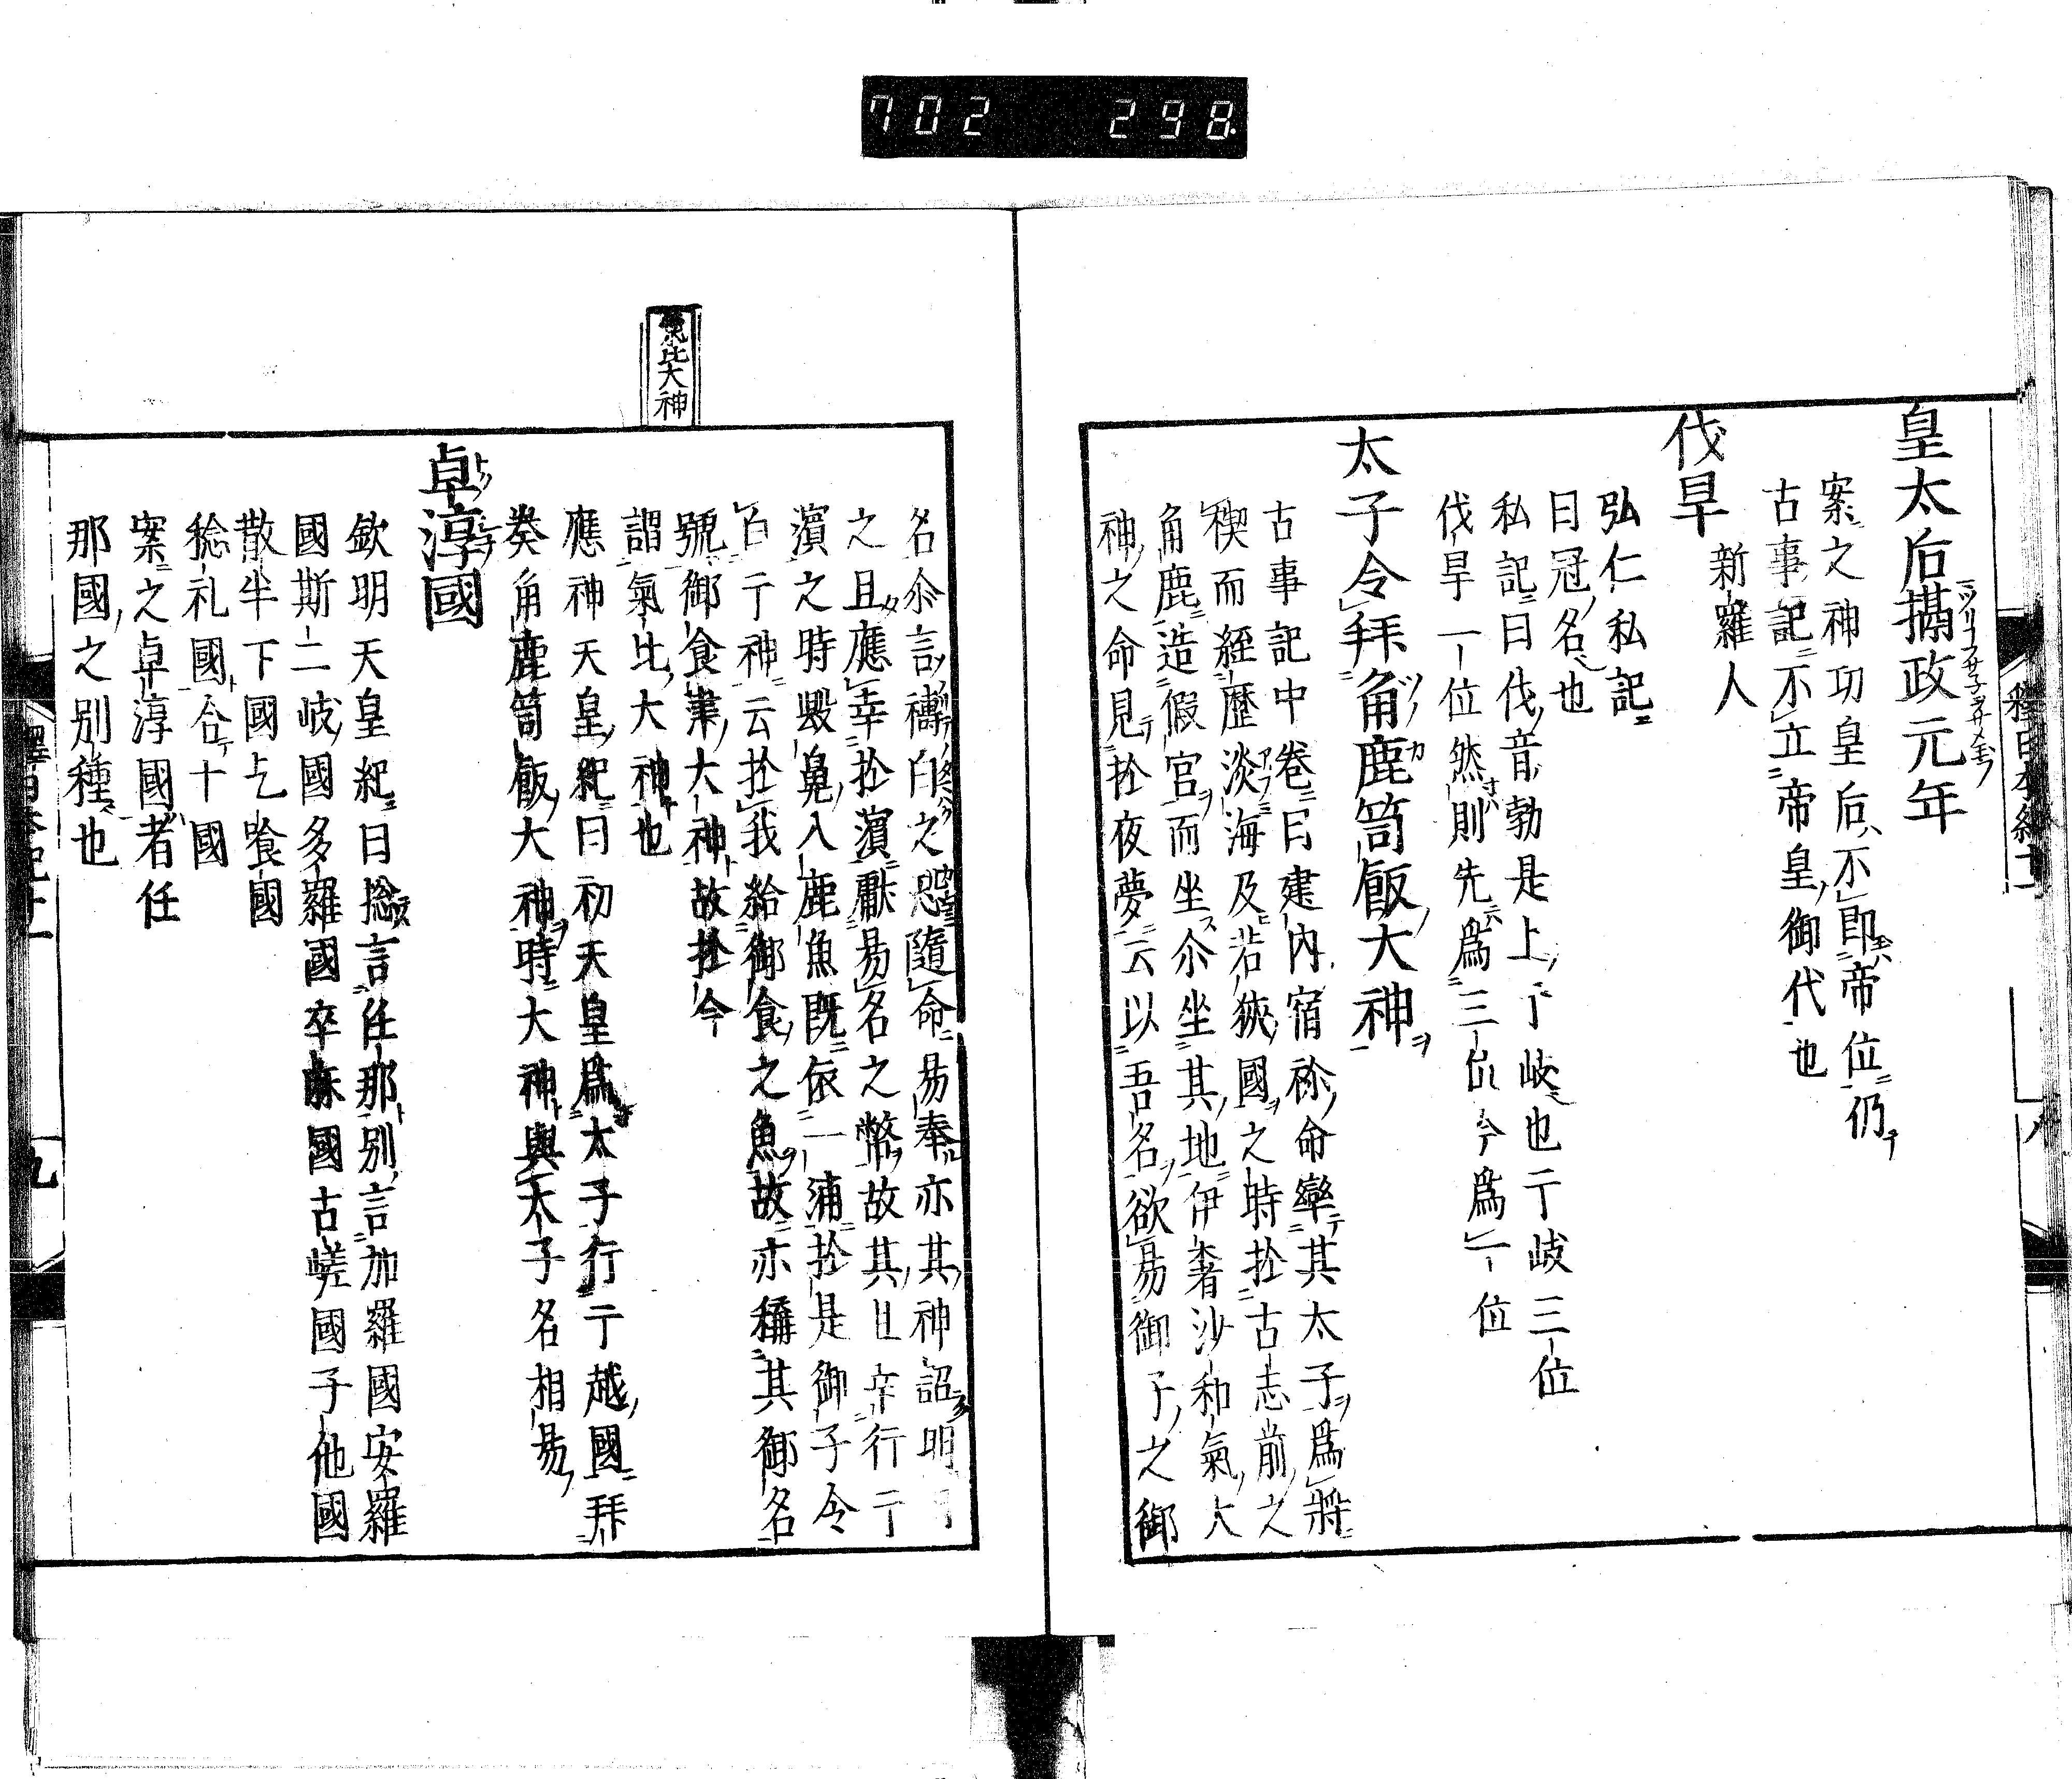 702 298
皇太后攝政元年
案之神功皇后不即帝位仍
古事記不立帝皇御代也
伐旱
新羅人
弘仁私記
曰冠名也
私記曰伐音勃是上下岐也亍岐三位
伐旱一位然則先爲三位今爲一位
太子令拜角鹿笥飯大神
古事記中卷曰建内宿祢命率其太子爲將
禊而經歴淡海及若狹國之時於古志前之
角鹿造假宮而坐尒坐其地伊奢沙和氣大
神之命見於夜夢云以吾名欲易御子之御
名尒言禱白之恐隨命易奉亦其神詔明日
之且應幸於濵獻易名之幣故其且幸行亍
濵之時毀鼻入鹿魚既依一浦於是御子令
白亍神云於我給御食之魚故亦稱其御名
號御食津大神故於今
謂氣比大神也
氣比大神
應神天皇紀曰初天皇爲太子行亍越國拜
祭角鹿笥飯大神時大神與太子名相易
卓淳國
欽明天皇紀曰捴言任那別言加羅國安羅
國斯二岐國多羅國卒麻國古嵯國子他國
散半下國乞飡國
稔礼國合十國
案之卓淳國者任
那國之別種也
釋日本紀十一
九